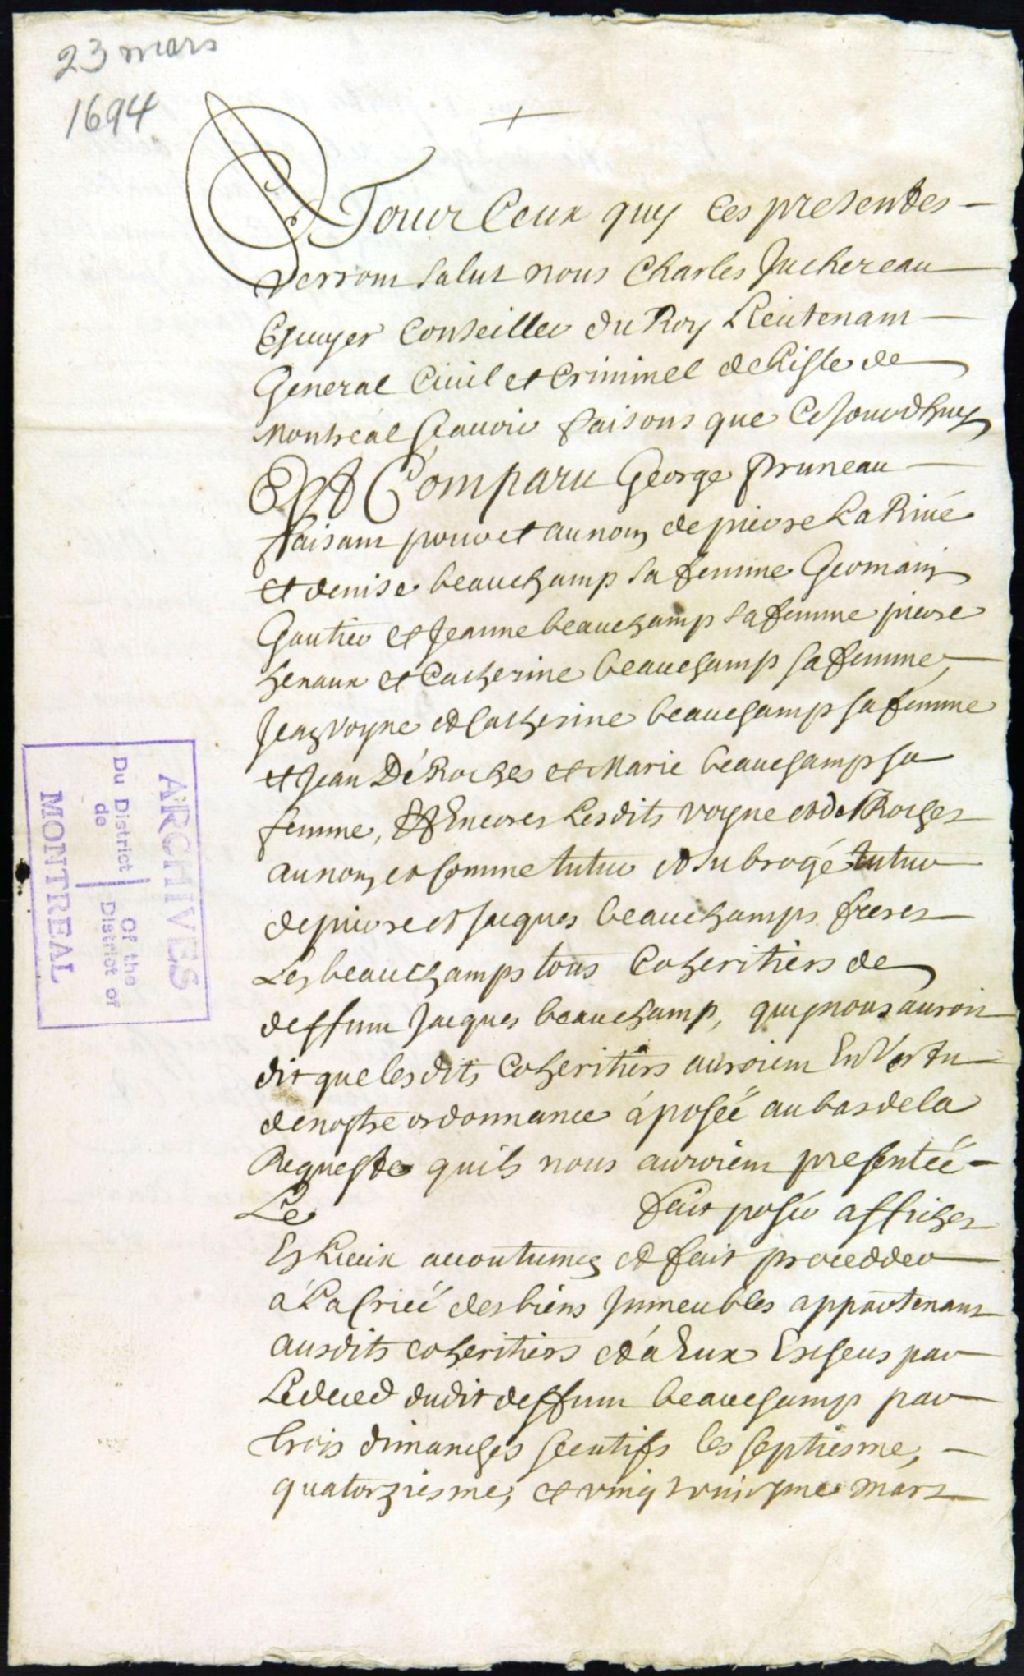 23 mars
1694
A Tour Ceux quy Ces presentes
verront salut nous Charles Juchereau
Escuyer Conseiller du Roy Lieutenant
General Civil et Criminel de l'isle de
Montréal scavoir faisons que Cejourdhuy
Est Comparu George Pruneau
faisant pour et au nom de pierre La Rivé
et denise beauchamp sa femme Germain
Gautier et Jeanne beauchamp sa femme pierre
henaux et Catherine beauchamp sa femme,
Jean voyne et Catherine beauchamp sa femme
et Jean DéRoches et Marie beauchamp sa
femme, Et Encores Lesdits voyne et desRoches
au nom et comme tuteur et subrogé tuteur
de pierre et Jacques beauchamps freres
Les beauchamps tous Coheritiers de
deffunt Jacques beauchamp, quy nous auroit
dit que lesdits Coheritiers auroient En Vertu
de nostre ordonnance áposéé au bas de la
Requeste quils nous auroient presentéé
Le fait poser afficher
Es Lieux accoutumez et fait procedder
á La Criéé des biens Jmmeubles appartenans
ausdits coheritiers et á Eux Escheus par
Le deced dudit deffunt beauchamp par
trois dimanches secutifs les septiesme,
quatorziesme, et ving mars
ARCHIVES
Du District | Of the
de | District of
MONTREAL